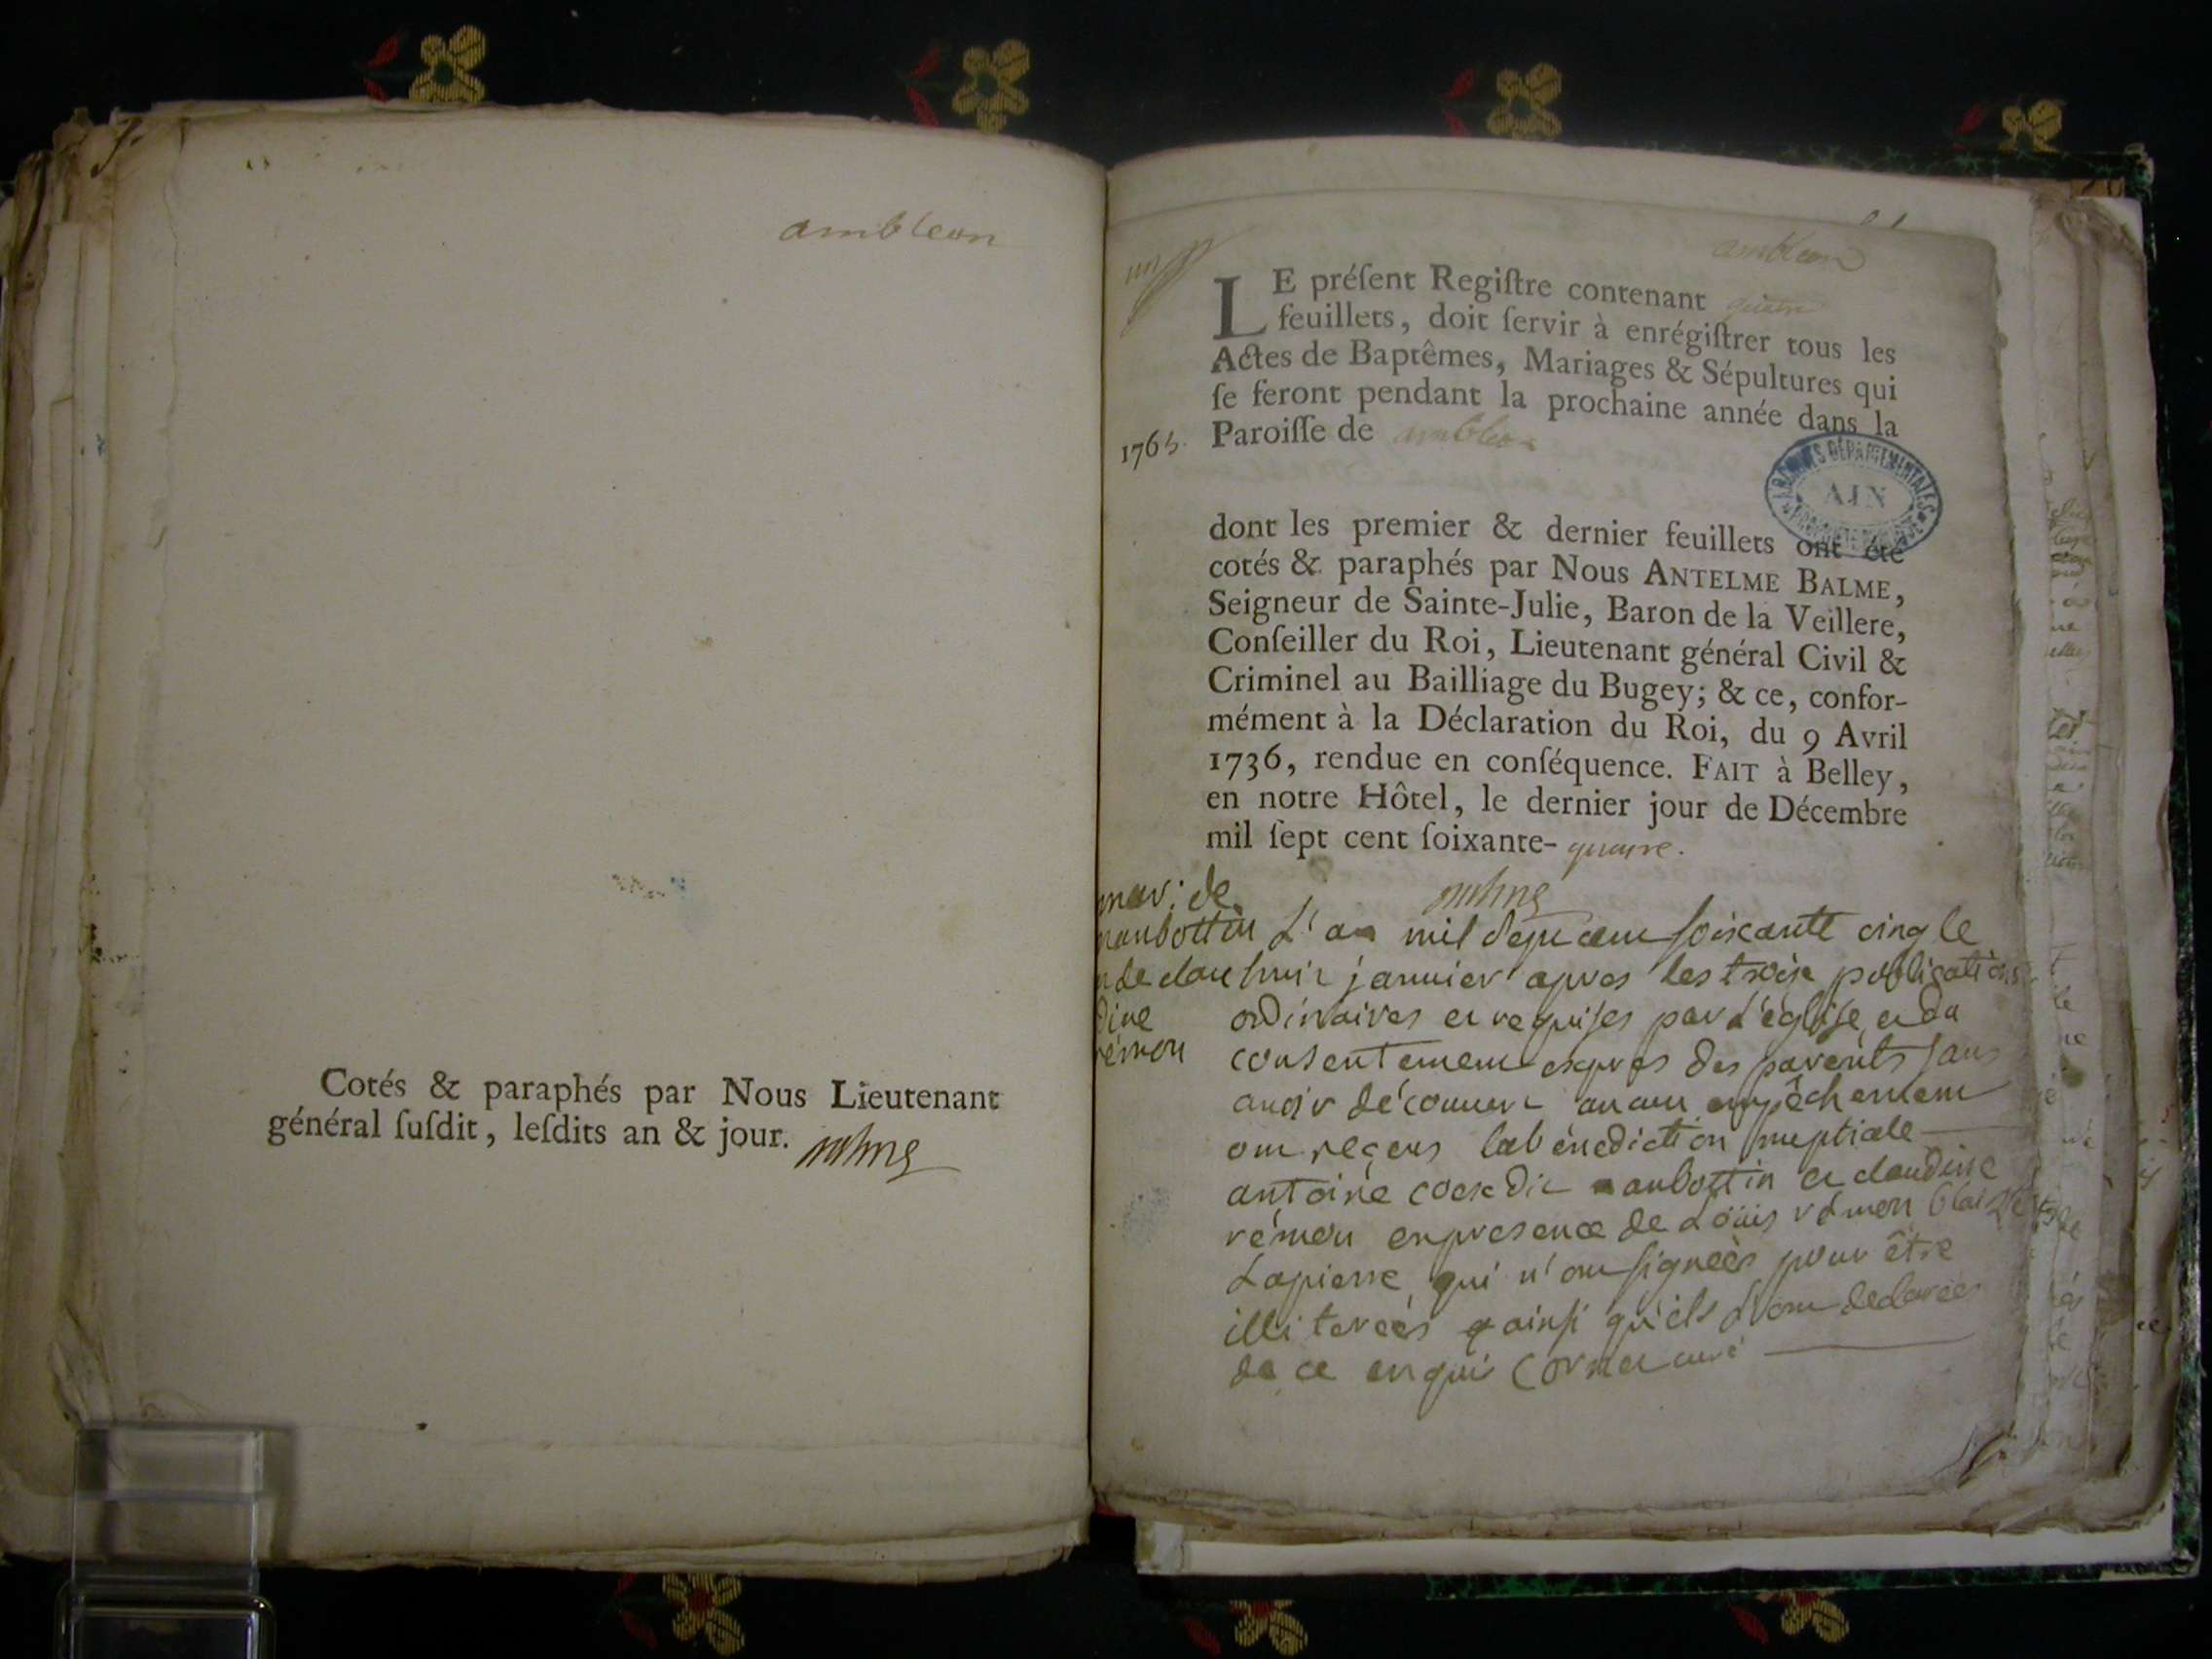 ambleon
Cotés & paraphés par Nous Lieutenant
général ſuſdit, leſdits an & jour.
ambleon
LE préſent Regiſtre contenant quatre
feuillets, doit ſervir à enrégiſtrer tous les
Actes de Baptêmes, Mariages & Sépultures qui
ſe feront pendant la prochaine année dans la
1765. Paroiſſe de ambleon
ARCHIVES DÉPARTEMENTALES
AIN
dont les premier & dernier feuillets ont été
cotés & paraphés par Nous ANTELME BALME,
Seigneur de Sainte-Julie, Baron de la Veillere,
Conſeiller du Roi, Lieutenant général Civil &
Criminel au Bailliage du Bugey; & ce, confor-
mément à la Déclaration du Roi, du 9 Avril
1736, rendue en conſéquence. FAIT à Belley,
en notre Hôtel, le dernier jour de Décembre
mil ſept cent ſoixante- quatre.
mar: de
aubottin
de clau
dine
rémon
L'an mil sept cent soixante cinq le
huit janvier apres les trois publications
ordinaires et requises par l'église et du
consentement expres des parents sans
avoir découvert aucun empêchement
ont reçeus la bénediction nuptiale
antoine aubottin et claudine
rémon en presence de Loüis rémon
Lapierre, qui n'ont signeés pour être
illitereés ainsi qu'ils l'ont declareés
de ce enquis Cornet curé